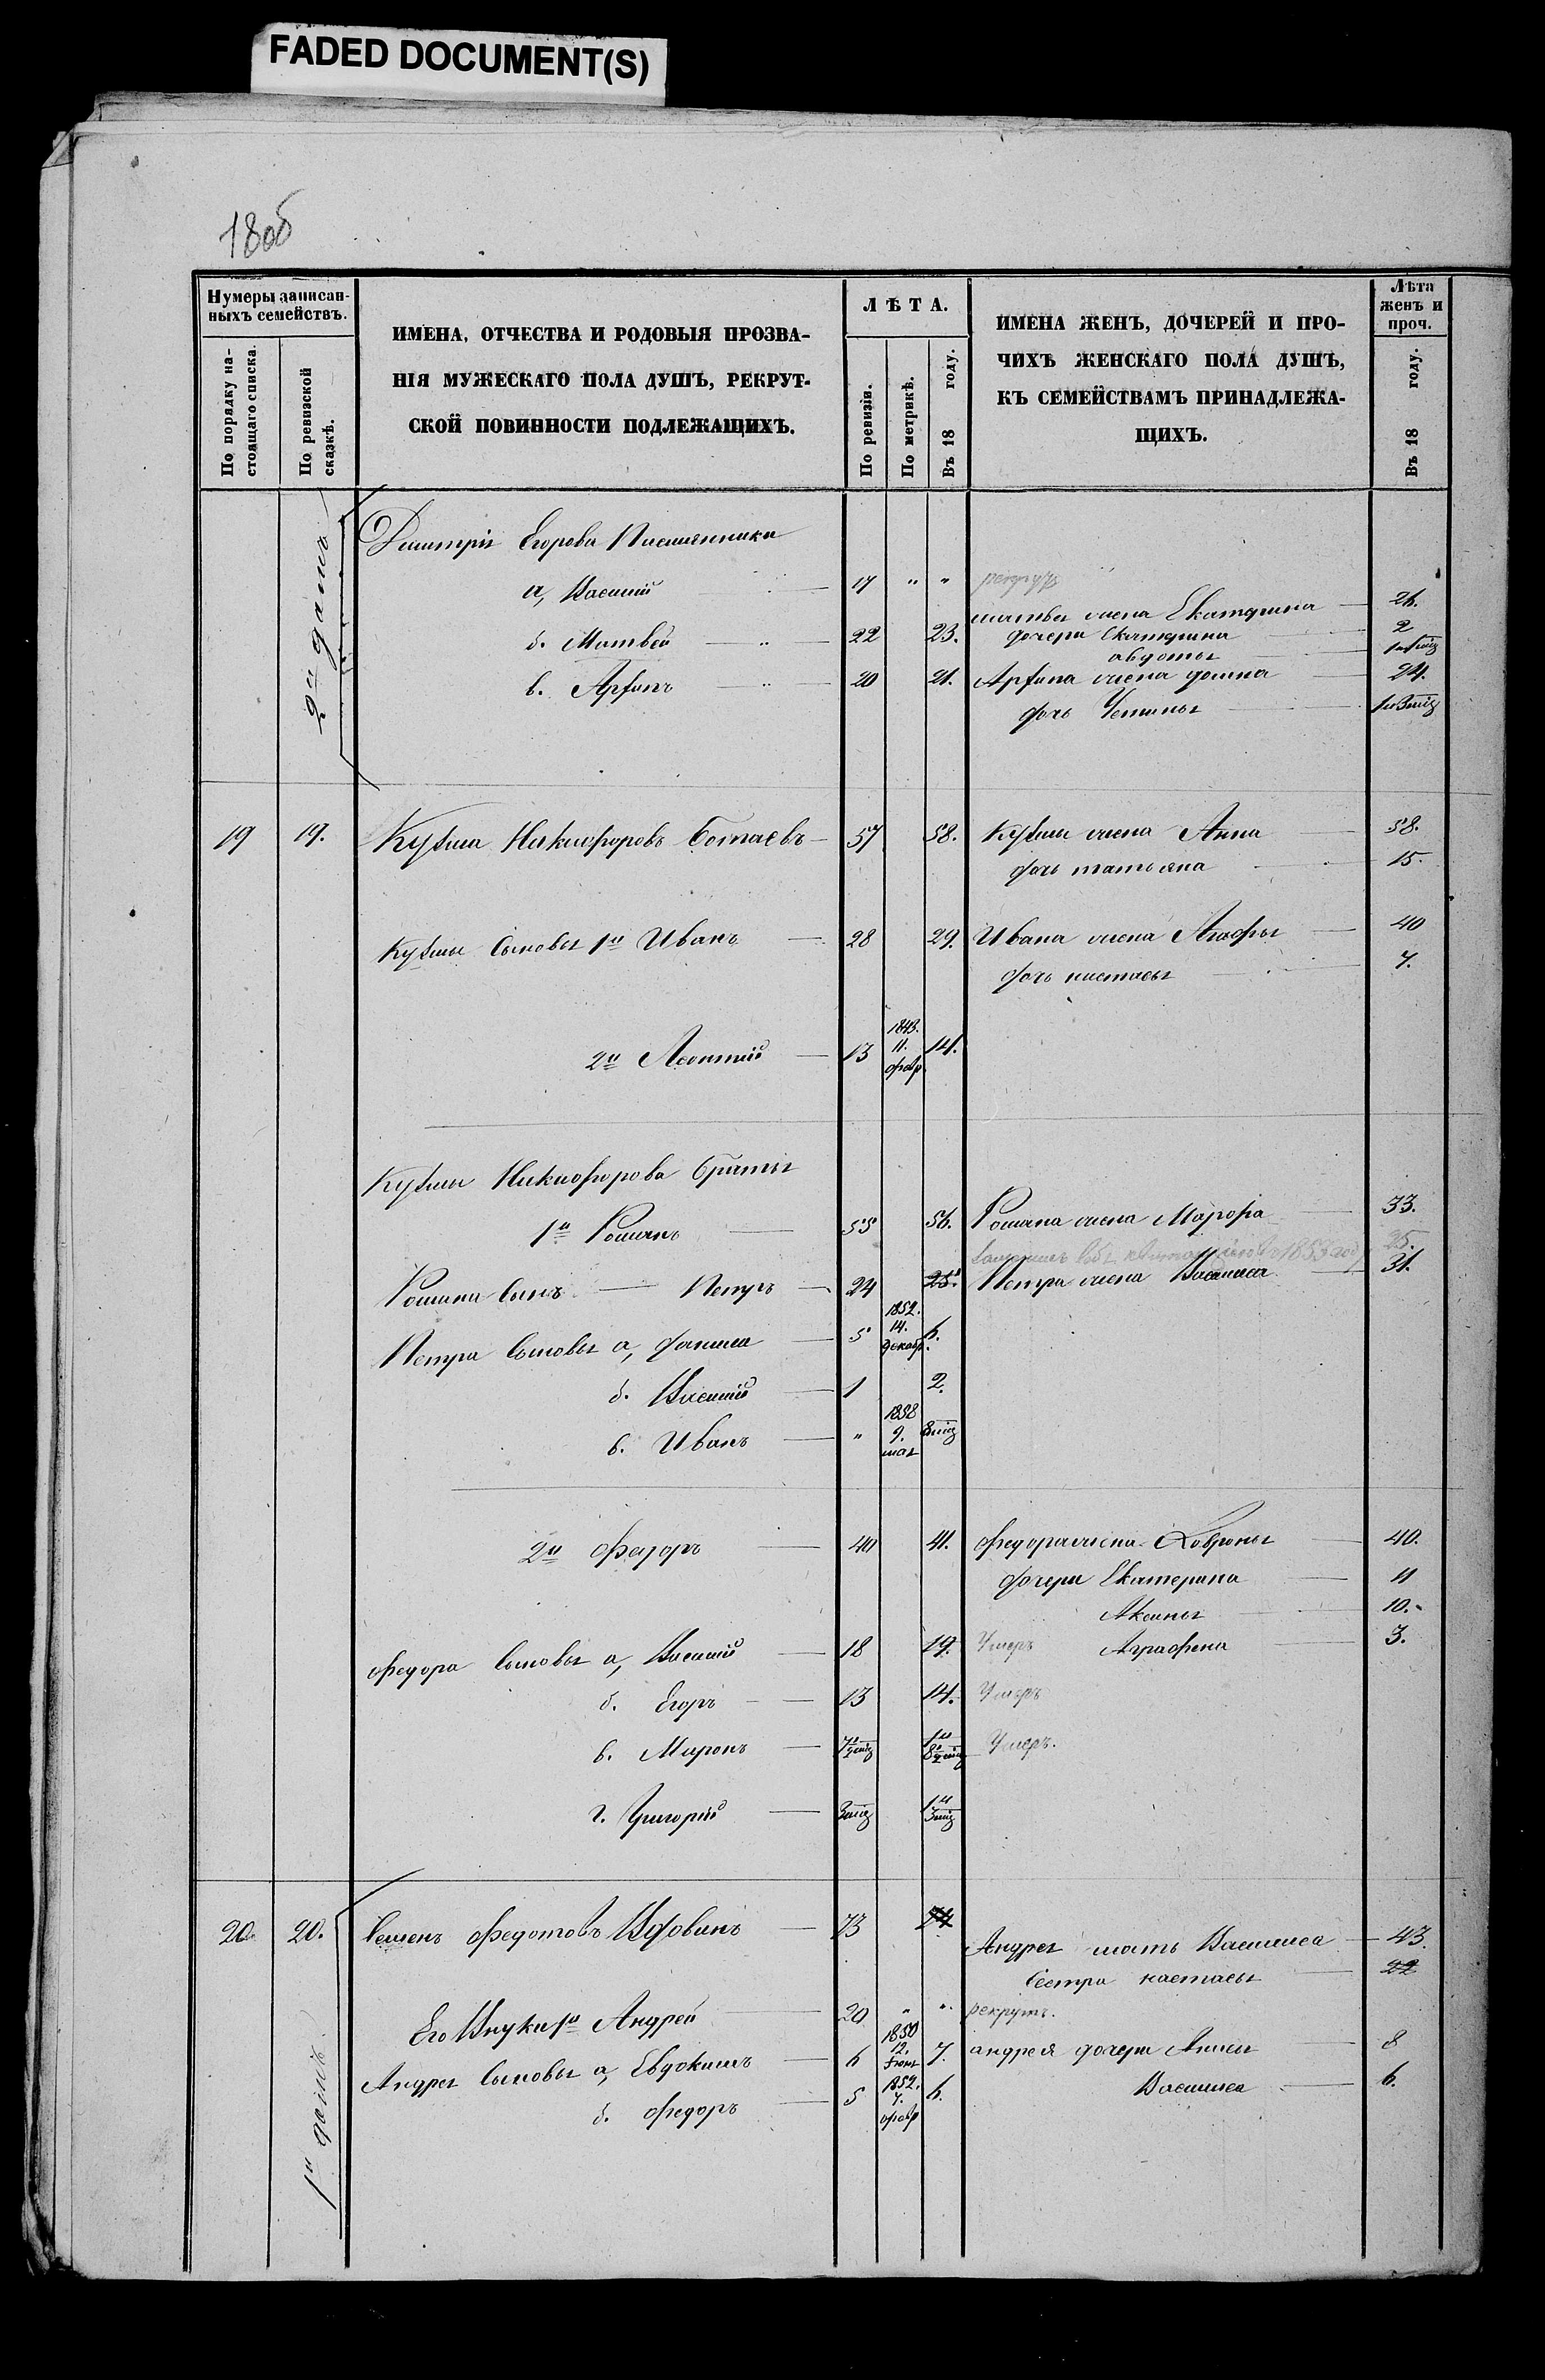 FADED DOCUMENT(S)
180об
Нумеры записан-
ныхъ семействъ.
По порядку на-
стоящаго списка.
По ревизской
сказкѣ.
ИМЕНА, ОТЧЕСТВА И РОДОВЫЯ ПРОЗВА-
НІЯ МУЖЕСКАГО ПОЛА ДУШЪ, РЕКРУТ-
СКОЙ ПОВИННОСТИ ПОДЛЕЖАЩИХЪ.
ЛѢТА.
По ревизіи.
По метрикѣ.
Въ 18 году.
ИМЕНА ЖЕНЪ, ДОЧЕРЕЙ И ПРО-
ЧИХЪ ЖЕНСКАГО ПОЛА ДУШЪ,
КЪ СЕМЕЙСТВАМЪ ПРИНАДЛЕЖА-
ЩИХЪ.
Лѣта
женъ и
проч.
Въ 18 году.
Дмитрія Егорова Племянники
а, Василий 17 " " рекрутъ
матвея жена Екатерина 26.
б. Матвей 22 23. дочери Екатерина 2
авдотья
в. Архипъ 20 21. Архипа жена домна 24.
дочь Устинья 1 и 3 мѣц
19 19. Кузьма Никифоровъ 57 58. Кузьмы жена Анна 58.
дочь татьяна 15.
Кузьмы Сыновья 1й Иванъ 28 29. Ивана жена Агафья 40
дочь настасья 7.
2й Леонтий 13 1843. 11. февр. 14.
Кузьмы Никифорова братья
1й Романъ 55 56. Романа жена Марфа 33.
1853 году 25.
Романа Сынъ Петръ 24 25. Петра жена Василиса 31.
Петра Сыновья а, данила 5 1852. 14. декабр. 6.
б. Василий 1 2.
в. Иванъ " 1858 9. мая 8 мѣц
2й Федоръ 40 41. Федора жена Ховронья 40.
дочери Екатерина 11
Аксинья 10.
Федора Сыновья а, Василий 18 19. Умеръ Аграфена 3.
б. Егоръ 13 14. Умеръ
в. Миронъ Умеръ.
г. Григорий 3 мѣц 1 и 3 мѣц
20. 20. Семенъ Федотовъ Вдовинъ 73 74
Андрея мать Василиса 43.
Сестра настасья 22
Его Внуки 1й Андрей 20 " " рекрутъ.
Андрея Сыновья а, Евдокимъ 6 1850 12. Іюня 7. андрея дочери Анисья 8
б. Федоръ 5 1852. 7. февр 6. Василиса 6.